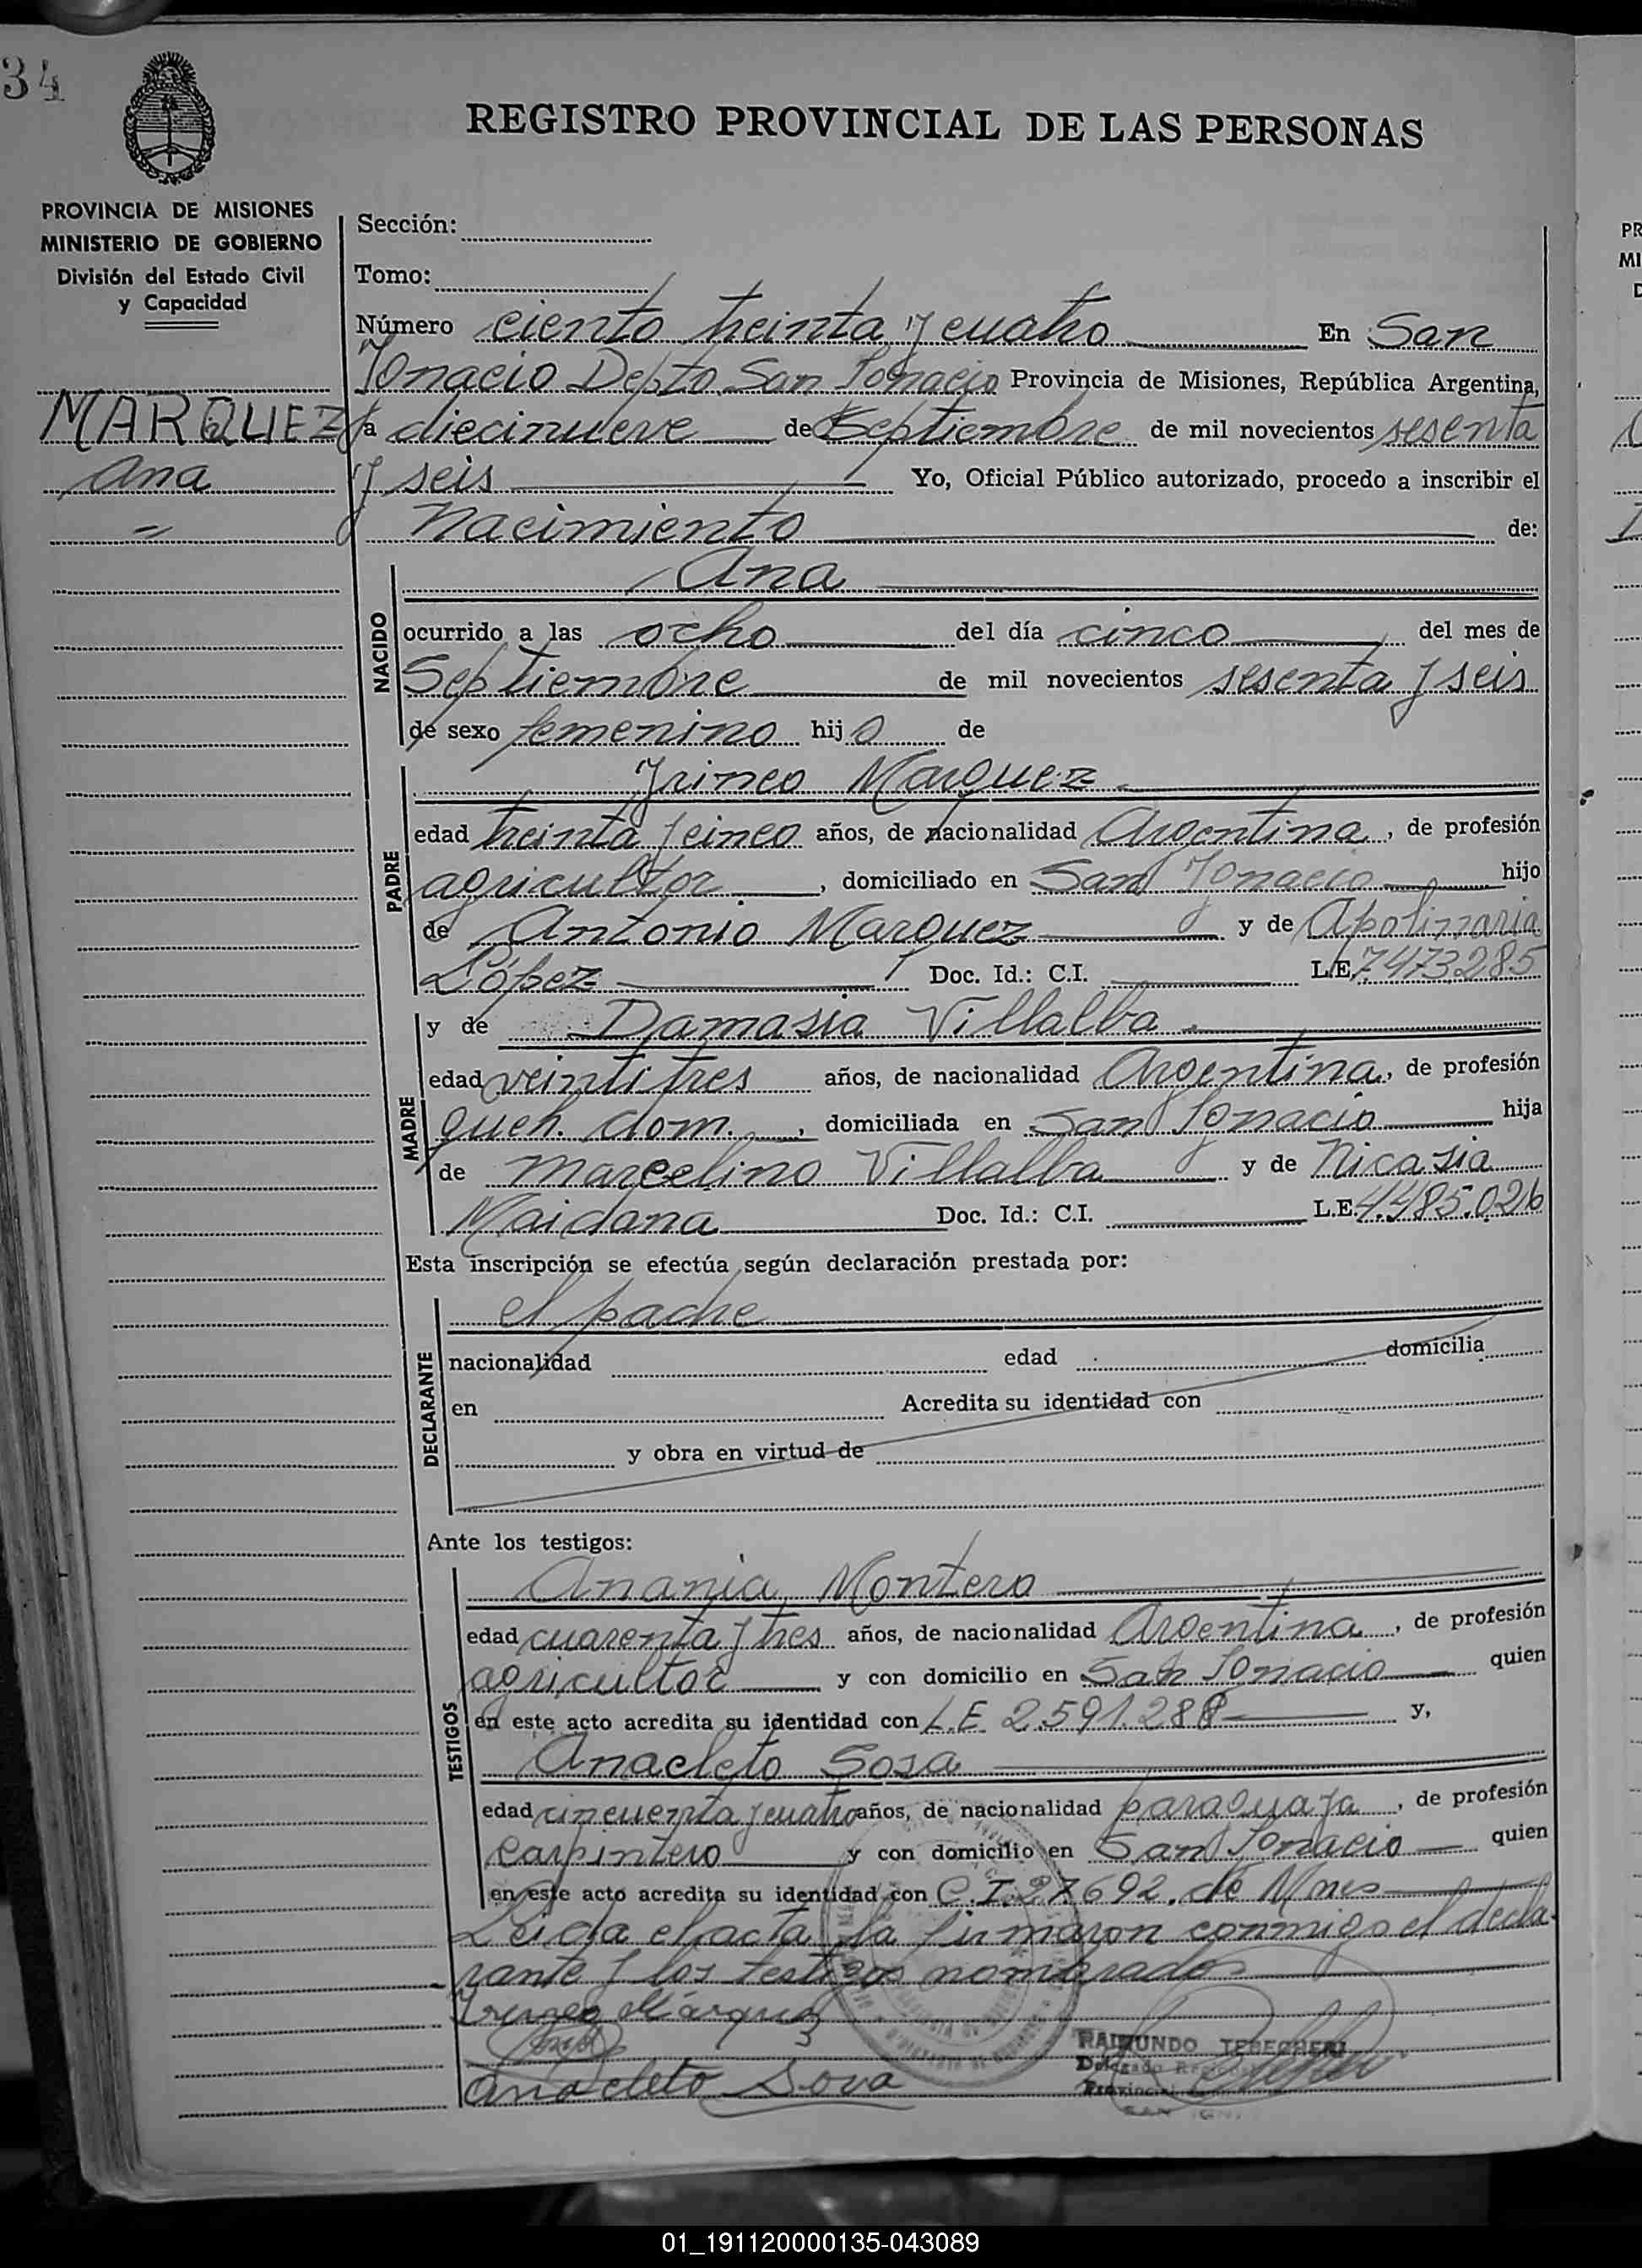 34
REGISTRO PROVINCIAL DE LAS PERSONAS
PROVINCIA DE MISIONES
MINISTERIO DE GOBIERNO
División del Estado Civil
y Capacidad
MARQUEZ
Ana
Sección:
Tomo:
Número ciento treinta y cuatro En San
Ignacio Depto San Ignacio Provincia de Misiones, República Argentina,
a diecinueve de Septiembre de mil novecientos sesenta
y seis Yo, Oficial Público autorizado, procedo a inscribir el
nacimiento de:
NACIDO
Ana
ocurrido a las ocho del día cinco del mes de
Septiembre de mil novecientos sesenta y seis
de sexo femenino hija de
PADRE
Irineo Marquez
edad treinta y cinco años, de nacionalidad Argentina, de profesión
agricultor, domiciliado en San Ignacio hijo
de Antonio Marquez y de Apolinaria
López Doc. Id.: C.I. L.E. 7473285
MADRE
y de Damasia Villalba
edad veintitres años, de nacionalidad Argentina, de profesión
queh. dom., domiciliada en San Ignacio hija
de Marcelino Villalba y de Nicasia
Maidana Doc. Id.: C.I. L.E. 4.485.026
Esta inscripción se efectúa según declaración prestada por:
DECLARANTE
el padre
nacionalidad edad domicilia
en Acredita su identidad con
y obra en virtud de
Ante los testigos:
TESTIGOS
Anania Montero
edad cuarenta y tres años, de nacionalidad Argentina, de profesión
agricultor y con domicilio en San Ignacio quien
en este acto acredita su identidad con L.E. 2.591.288 y,
Anacleto Sosa
edad cincuenta y cuatro años, de nacionalidad paraguaya, de profesión
carpintero y con domicilio en San Ignacio quien
en este acto acredita su identidad con C.I. 27692. de Mnes
Leida el acta, la firmaron conmigo el decla-
rante y los testigos nombrados
Irineo Márquez
Anacleto Sova
RAIMUNDO
Delegado
Provincial
01_191120000135-043089